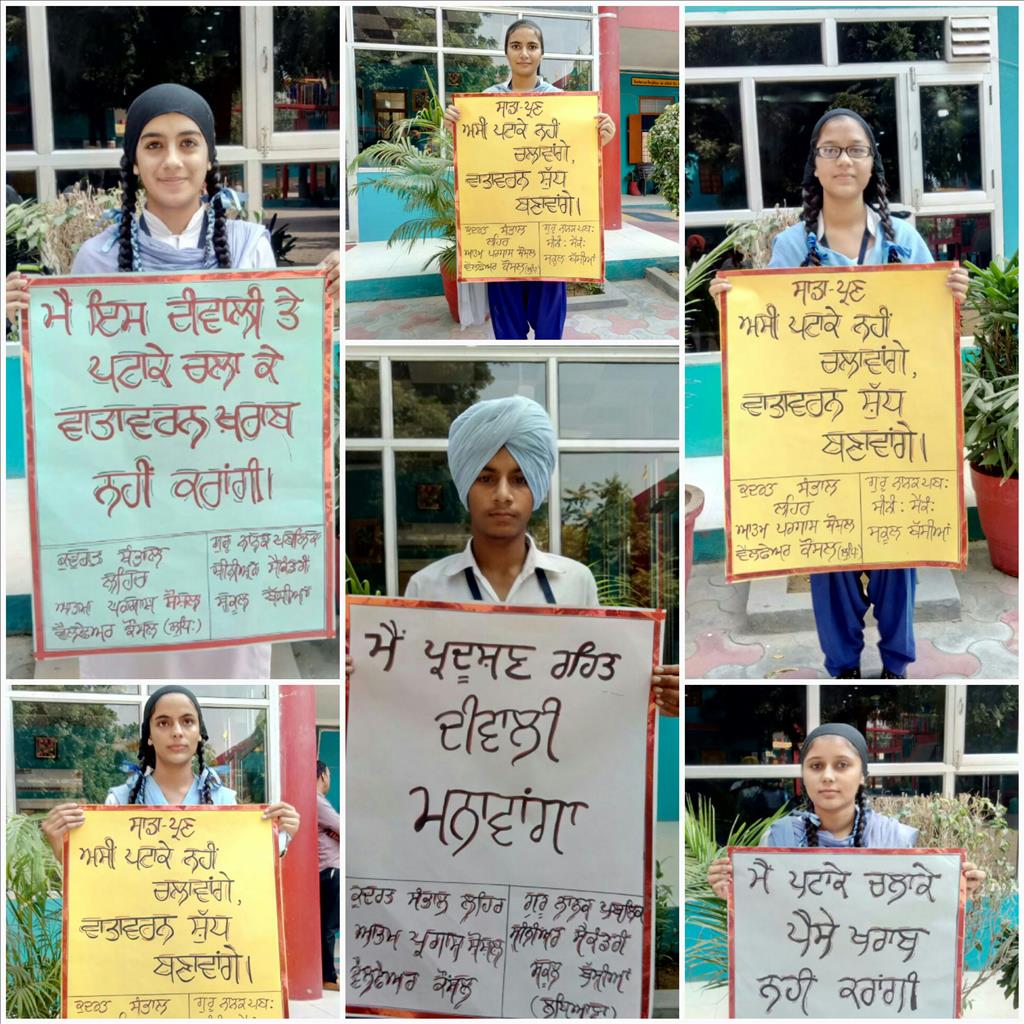 ਮੈਂ ਇਸ ਦੀਵਾਲੀ ਤੇ
ਪਟਾਕੇ ਚਲਾ ਕੇ
ਵਾਤਾਵਰਨ ਖ਼ਰਾਬ
ਨਹੀਂ ਕਰਾਂਗੀ।
ਕੁਦਰਤ ਸੰਭਾਲ
ਲਹਿਰ
ਆਤਮ ਪਰਗਾਸ ਸੋਸ਼ਲ
ਵੈਲਫੇਅਰ ਕੌਂਸਲ (ਲੁਧਿ:)
ਗੁਰੂ ਨਾਨਕ ਪਬਲਿਕ
ਸੀਨੀਅਰ ਸੈਕੰਡਰੀ
ਸਕੂਲ ਬੱਸੀਆਂ
ਸਾਡਾ-ਪ੍ਰਣ
ਅਸੀਂ ਪਟਾਕੇ ਨਹੀਂ
ਚਲਾਵਾਂਗੇ,
ਵਾਤਾਵਰਨ ਸ਼ੁੱਧ
ਬਣਾਵਾਂਗੇ।
ਕੁਦਰਤ ਸੰਭਾਲ
ਲਹਿਰ
ਆਤਮ ਪਰਗਾਸ ਸੋਸ਼ਲ
ਵੈਲਫੇਅਰ ਕੌਂਸਲ (ਲੁਧਿ)
ਗੁਰੂ ਨਾਨਕ ਪਬ:
ਸੀਨੀ: ਸੈਕੰ:
ਸਕੂਲ ਬੱਸੀਆਂ
ਸਾਡਾ-ਪ੍ਰਣ
ਅਸੀਂ ਪਟਾਕੇ ਨਹੀਂ
ਚਲਾਵਾਂਗੇ,
ਵਾਤਾਵਰਨ ਸ਼ੁੱਧ
ਬਣਾਵਾਂਗੇ।
ਕੁਦਰਤ ਸੰਭਾਲ
ਲਹਿਰ
ਆਤਮ ਪਰਗਾਸ ਸੋਸ਼ਲ
ਵੈਲਫੇਅਰ ਕੌਂਸਲ (ਲੁਧਿ:)
ਗੁਰੂ ਨਾਨਕ ਪਬ:
ਸੀਨੀ: ਸੈਕੰ:
ਸਕੂਲ ਬੱਸੀਆਂ
ਮੈਂ ਪ੍ਰਦੂਸ਼ਣ ਰਹਿਤ
ਦੀਵਾਲੀ
ਮਨਾਵਾਂਗਾ
ਕੁਦਰਤ ਸੰਭਾਲ ਲਹਿਰ
ਆਤਮ ਪ੍ਰਗਾਸ ਸੋਸ਼ਲ
ਵੈਲਫੇਅਰ ਕੌਂਸਲ
ਗੁਰੂ ਨਾਨਕ ਪਬਲਿਕ
ਸੀਨੀਅਰ ਸੈਕੰਡਰੀ
ਸਕੂਲ ਬੱਸੀਆਂ
(ਲੁਧਿਆਣਾ)
ਸਾਡਾ-ਪ੍ਰਣ
ਅਸੀਂ ਪਟਾਕੇ ਨਹੀਂ
ਚਲਾਵਾਂਗੇ,
ਵਾਤਾਵਰਨ ਸ਼ੁੱਧ
ਬਣਾਵਾਂਗੇ।
ਕੁਦਰਤ ਸੰਭਾਲ
ਗੁਰੂ ਨਾਨਕ ਪਬ:
ਮੈਂ ਪਟਾਕੇ ਚਲਾਕੇ
ਪੈਸੇ ਖਰਾਬ
ਨਹੀਂ ਕਰਾਂਗੀ